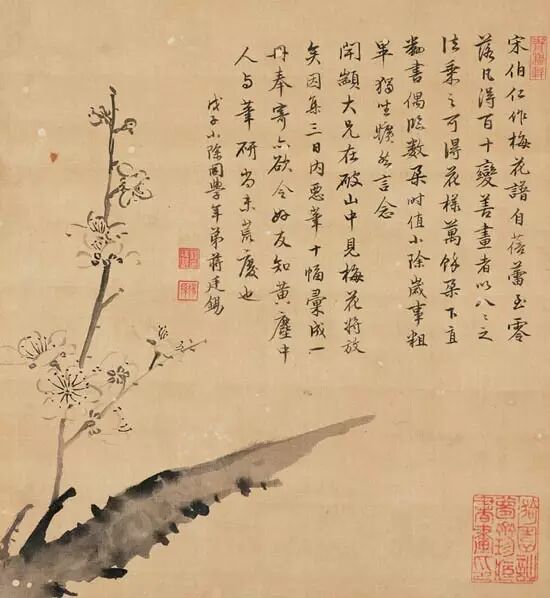 宋伯仁作梅花譜自蓓蕾至零
落凡得百十變善畫者以八八之
法乘之可得花樣萬餘朶下直
翻書偶臨數朶時值小除歲事粗
畢獨坐曠然言念
大兄在破山中見梅花將放
矣因集三日內惡筆十幅彙成一
冊奉寄亦欲令好友知黃塵中
人与筆研尚未荒廢也
戊子小除同學年弟蔣廷錫